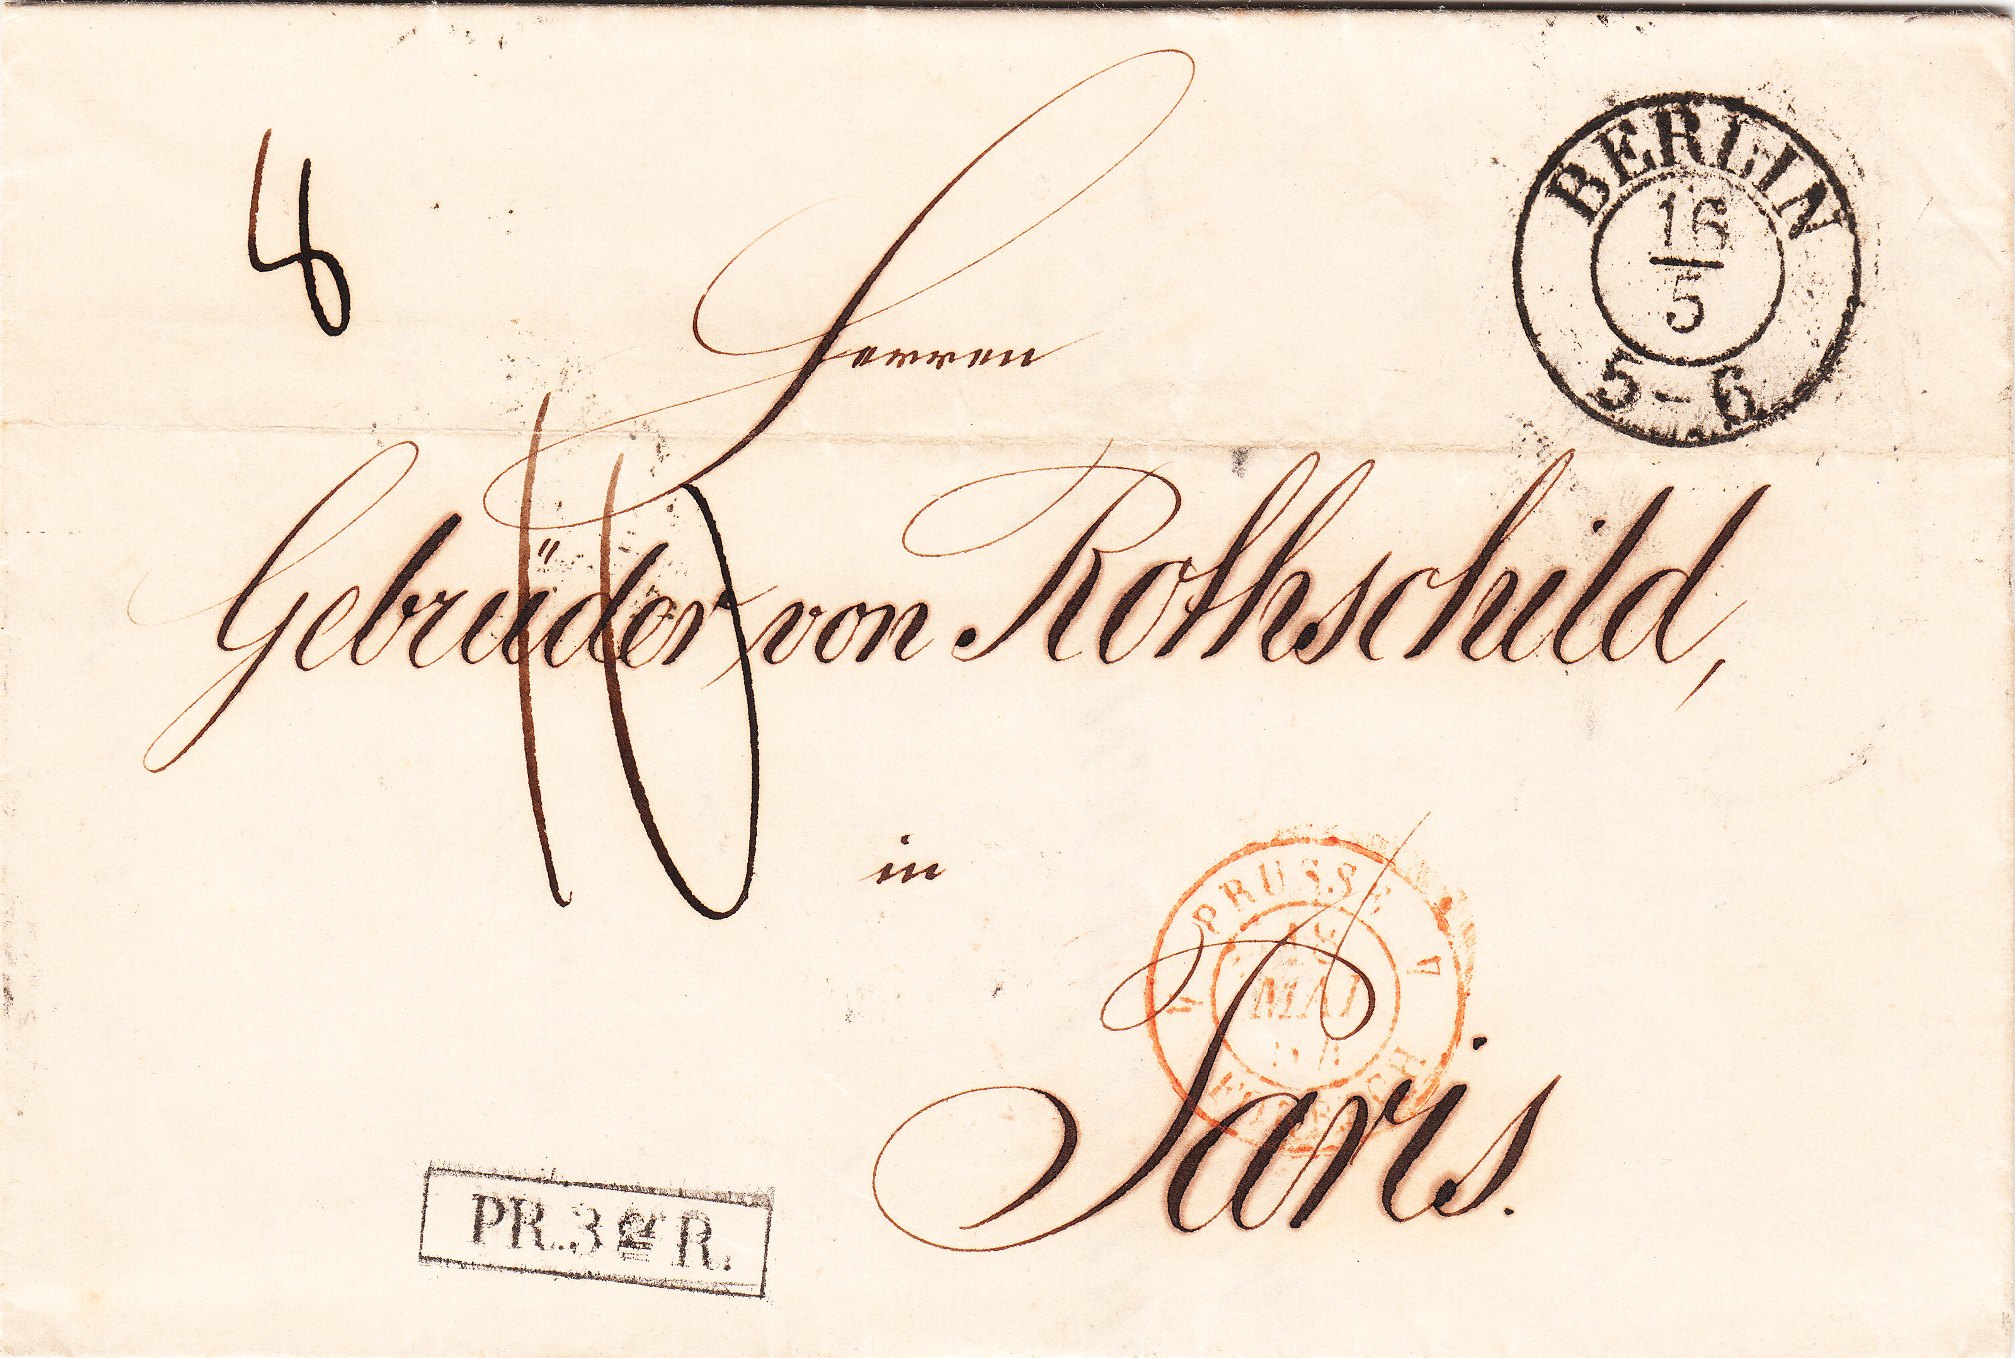 8
BERLIN
16
5
5-6
Herren
Gebrüder von Rothschild,
10
in
PRUSSE
4 4
MAI
FORBACH
Paris.
PR. 3ᵉ R.